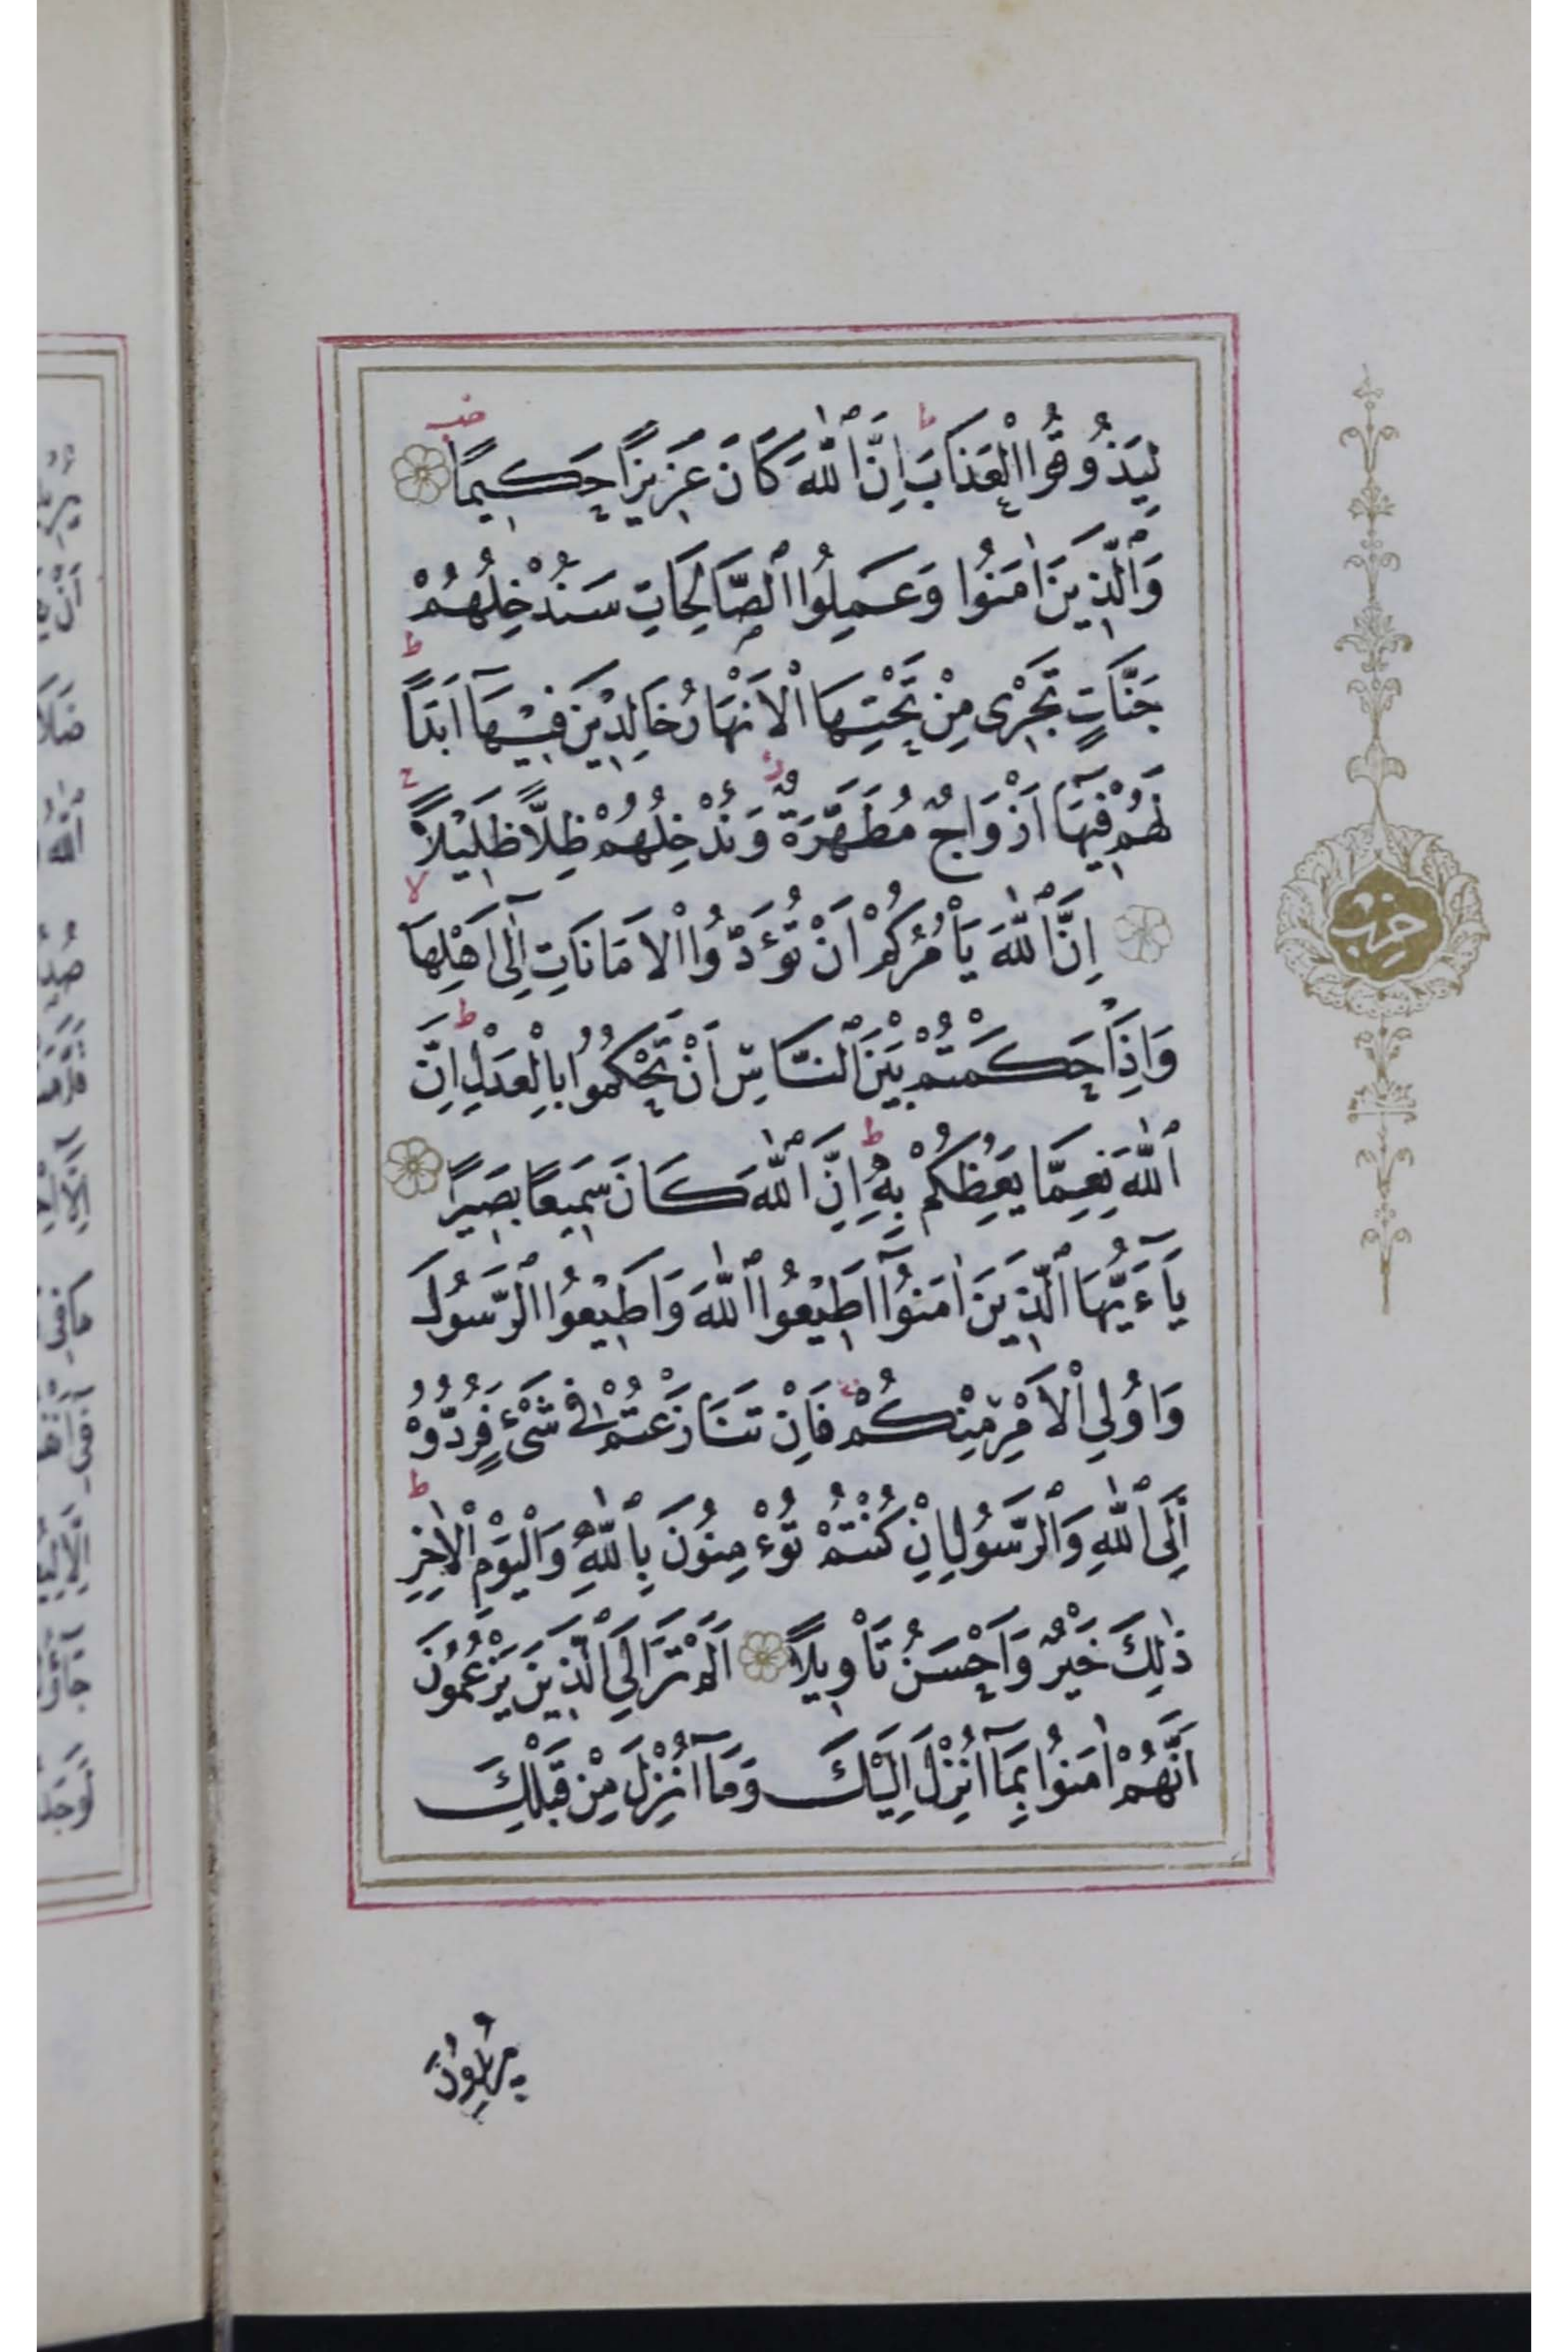 لِيَذُوقُوا الْعَذَابَ اِنَّ اللّٰهَ كَانَ عَزِيزًا حَكِيمًا
وَالَّذِينَ اٰمَنُوا وَعَمِلُوا الصَّالِحَاتِ سَنُدْخِلُهُمْ
جَنَّاتٍ تَجْرِى مِنْ تَحْتِهَا الْاَنْهَارُ خَالِدِينَ فِيهَآ اَبَدًا
لَهُمْ فِيهَآ اَزْوَاجٌ مُطَهَّرَةٌ وَنُدْخِلُهُمْ ظِلًّا ظَلِيلًا
اِنَّ اللّٰهَ يَأْمُرُكُمْ اَنْ تُؤَدُّوا الْاَمَانَاتِ اِلٰٓى اَهْلِهَا
وَاِذَا حَكَمْتُمْ بَيْنَ النَّاسِ اَنْ تَحْكُمُوا بِالْعَدْلِ اِنَّ
اللّٰهَ نِعِمَّا يَعِظُكُمْ بِهِ اِنَّ اللّٰهَ كَانَ سَمِيعًا بَصِيرًا
يَآءَيُّهَا الَّذِينَ اٰمَنُوٓا اَطِيعُوا اللّٰهَ وَاَطِيعُوا الرَّسُولَ
وَاُولِي الْاَمْرِ مِنْكُمْ فَاِنْ تَنَازَعْتُمْ فِى شَىْءٍ فَرُدُّوهُ
اِلَى اللّٰهِ وَالرَّسُولِ اِنْ كُنْتُمْ تُؤْمِنُونَ بِاللّٰهِ وَالْيَوْمِ الْاٰخِرِ
ذٰلِكَ خَيْرٌ وَاَحْسَنُ تَأْوِيلًا اَلَمْ تَرَ اِلَى الَّذِينَ يَزْعُمُونَ
اَنَّهُمْ اٰمَنُوا بِمَآ اُنْزِلَ اِلَيْكَ وَمَآ اُنْزِلَ مِنْ قَبْلِكَ
يُرِيدُونَ
حزب